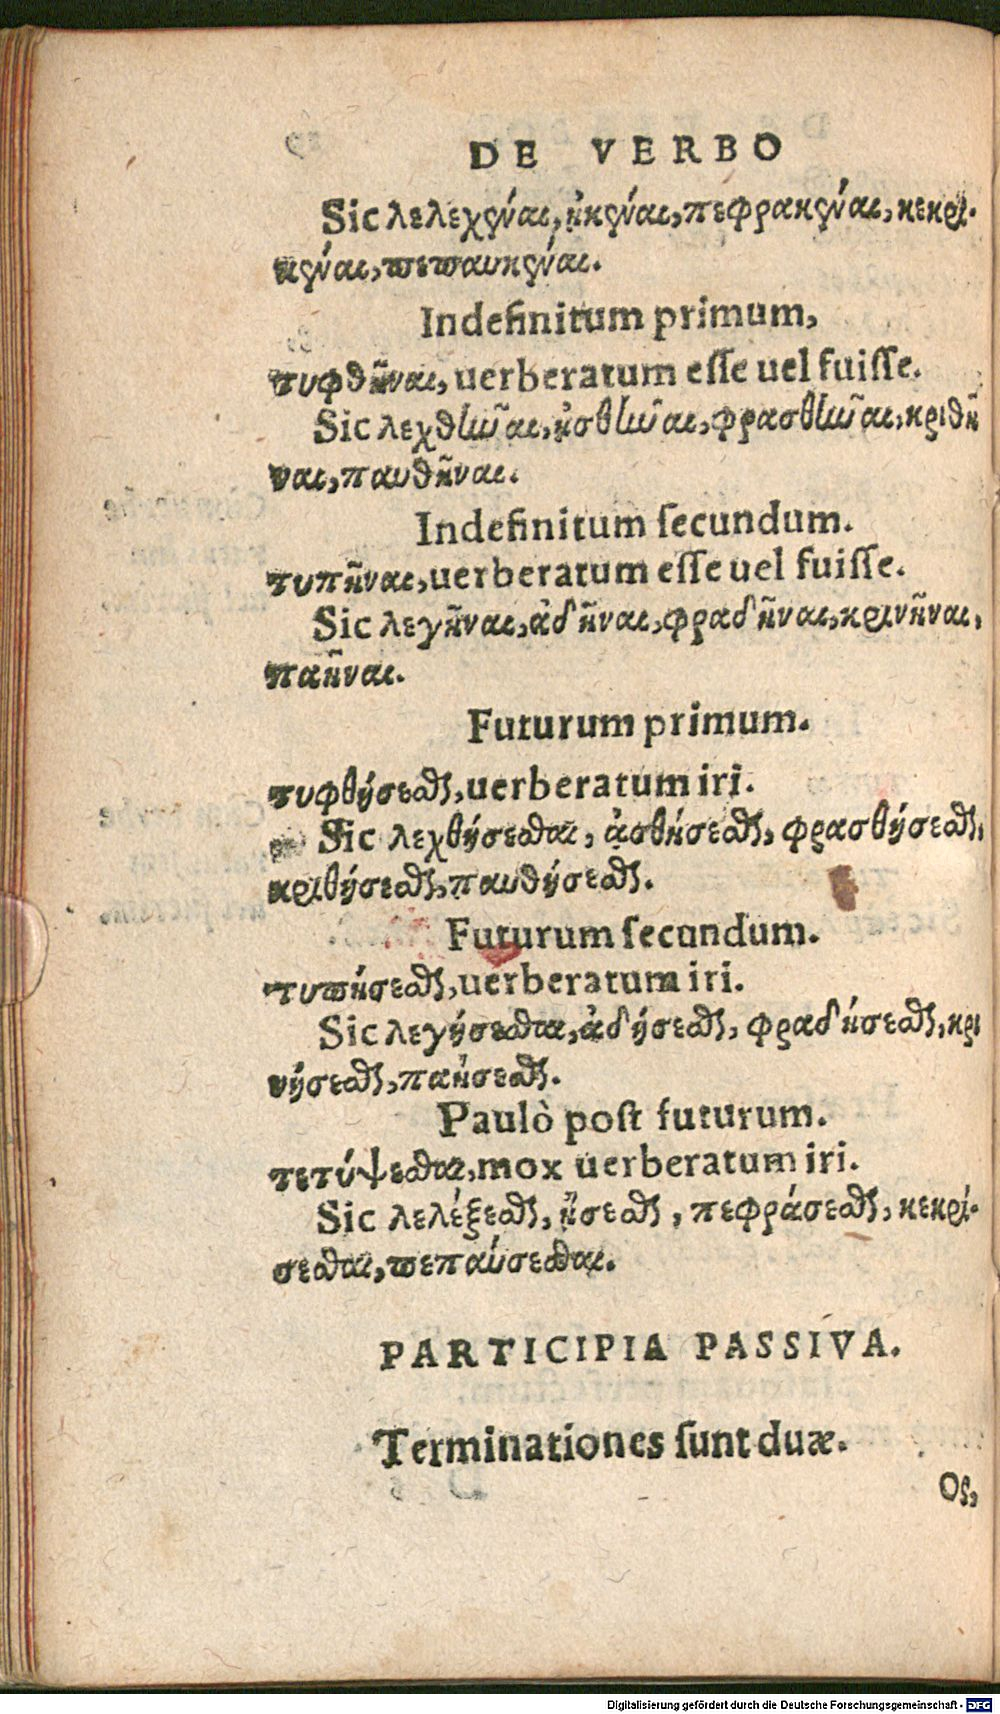 DE VERBO
Sic λελεχέναι, ἡκέναι, πεφρακέναι, κεκρι-
κέναι, πεπαυκέναι.
Indefinitum primum,
τυφθῆναι, uerberatum eſſe uel fuiſſe.
Sic λεχθῆναι, ἡσθῆναι, φρασθῆναι, κριθῆ
ναι, παυθῆναι.
Indefinitum ſecundum.
τυπῆναι, uerberatum eſſe uel fuiſſe.
Sic λεγῆναι, ἁδῆναι, φραδῆναι, κρινῆναι,
παῆναι.
Futurum primum.
τυφθήσεσθαι, uerberatum iri.
Sic λεχθήσεσθαι, ἁσθήσεσθαι, φρασθήσεσθαι,
κριθήσεσθαι, παυθήσεσθαι.
Futurum ſecundum.
τυπήσεσθαι, uerberatum iri.
Sic λεγήσεσθαι, ἁδήσεσθαι, φραδήσεσθαι, κρι
νήσεσθαι, παήσεσθαι.
Paulò poſt futurum.
τετύψεσθαι, mox uerberatum iri.
Sic λελέξεσθαι, ἥσεσθαι, πεφράσεσθαι, κεκρί-
σεσθαι, πεπαύσεσθαι.
PARTICIPIA PASSIVA.
Terminationes ſunt duæ.
Ος,
Digitalisierung gefördert durch die Deutsche Forschungsgemeinschaft - DFG